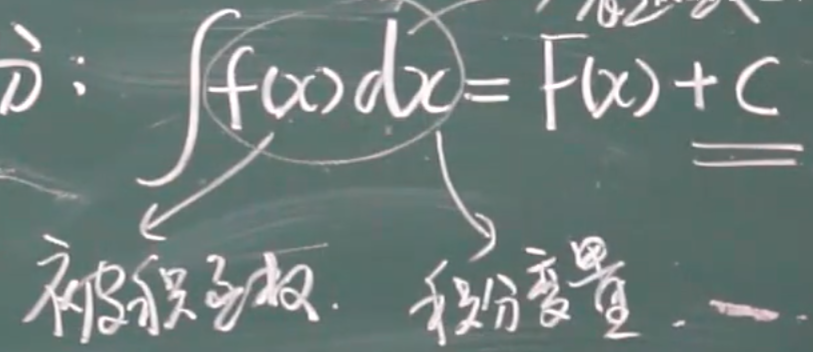 分: ∫f(x)dx = F(x) + C
被积函数. 积分变量.